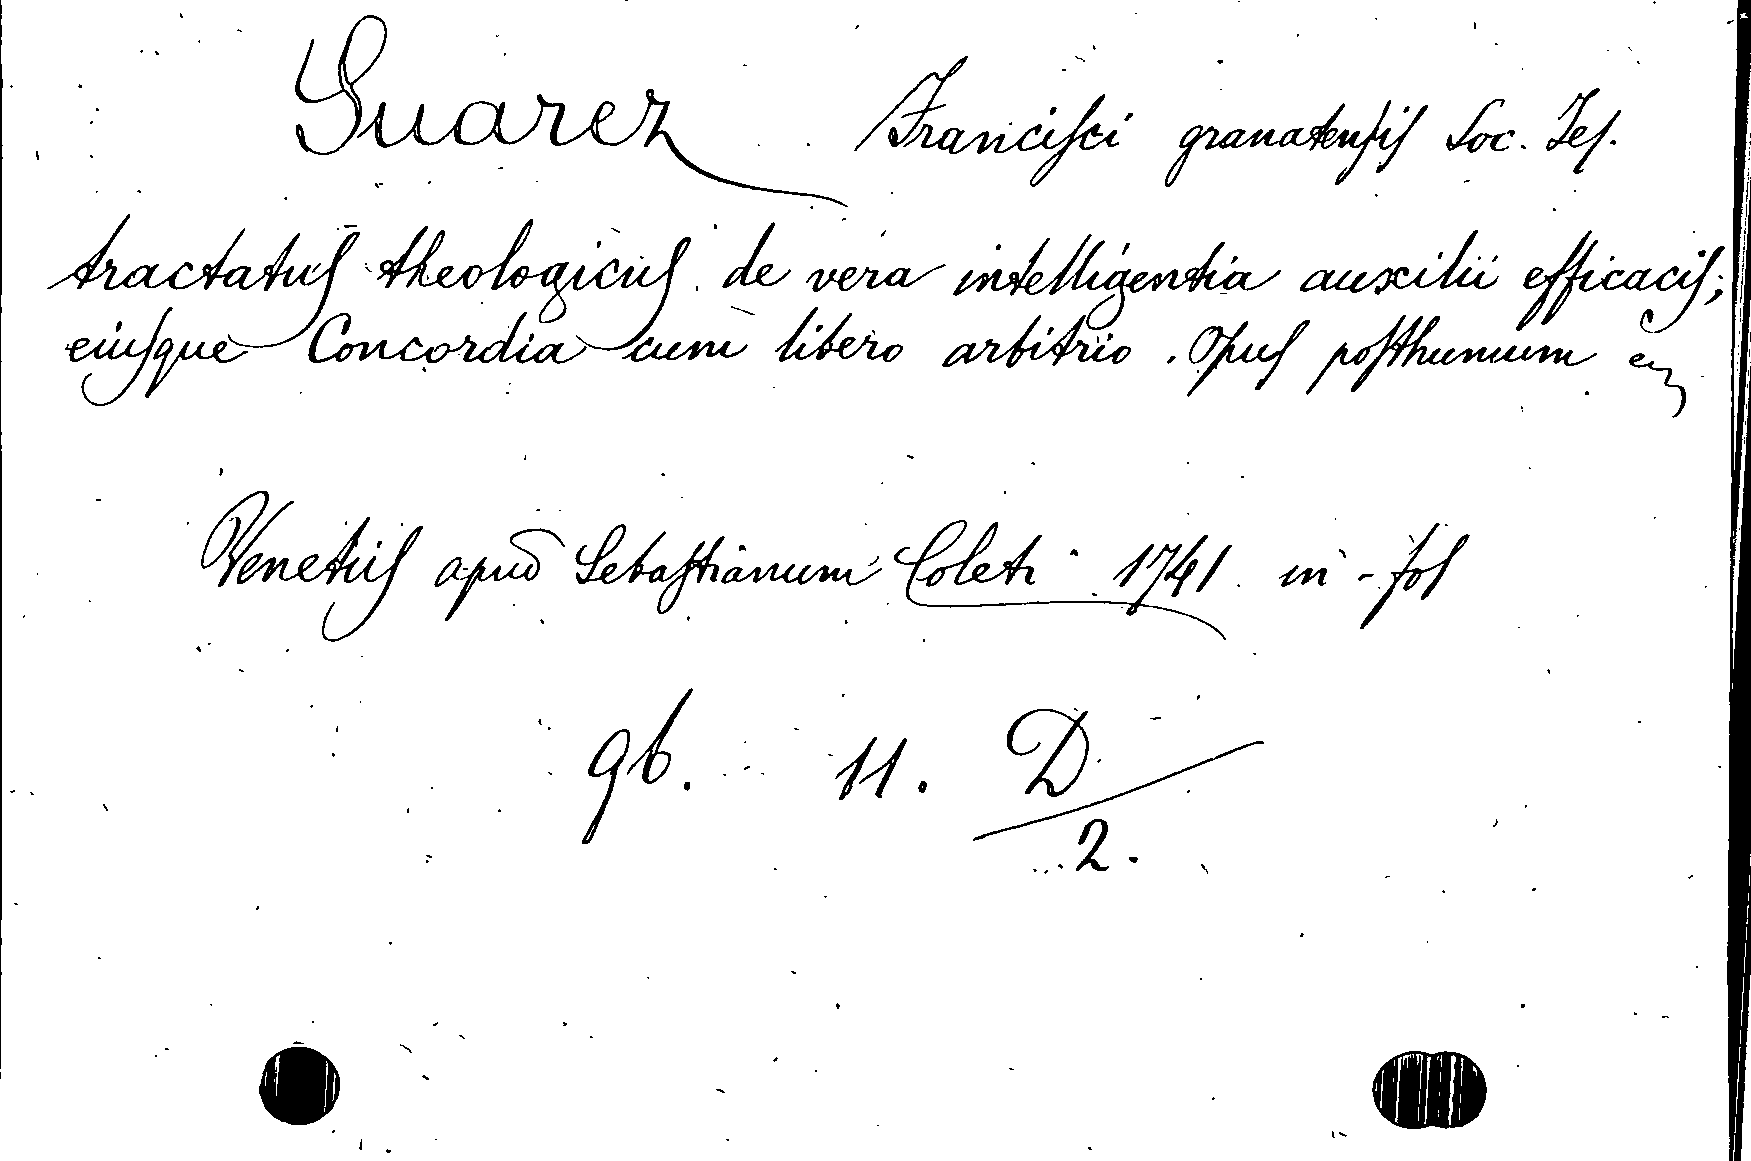 Suarez Francisci granatensis Soc. Jes.
tractatus theologicus de vera intelligentia auxilii efficacis;
eiusque Concordia cum libero arbitrio. Opus posthumum
Venetiis apud Sebastianum Coleti 1741 in-fol
96. 11. D
2.